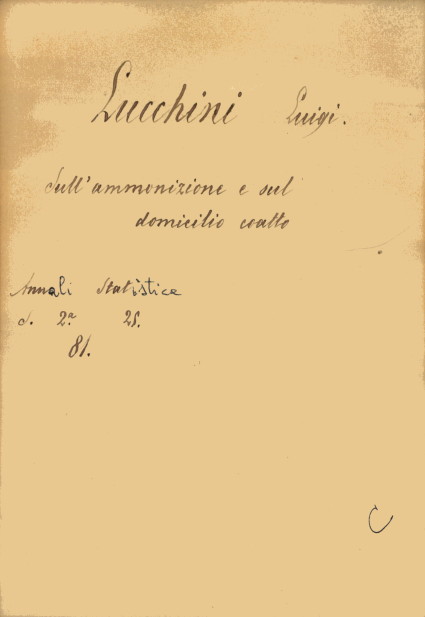 Lucchini Luigi.
Sull'ammonizione e sul
domicilio coatto
Annali Statistica
S. 2.a 25.
81.
C